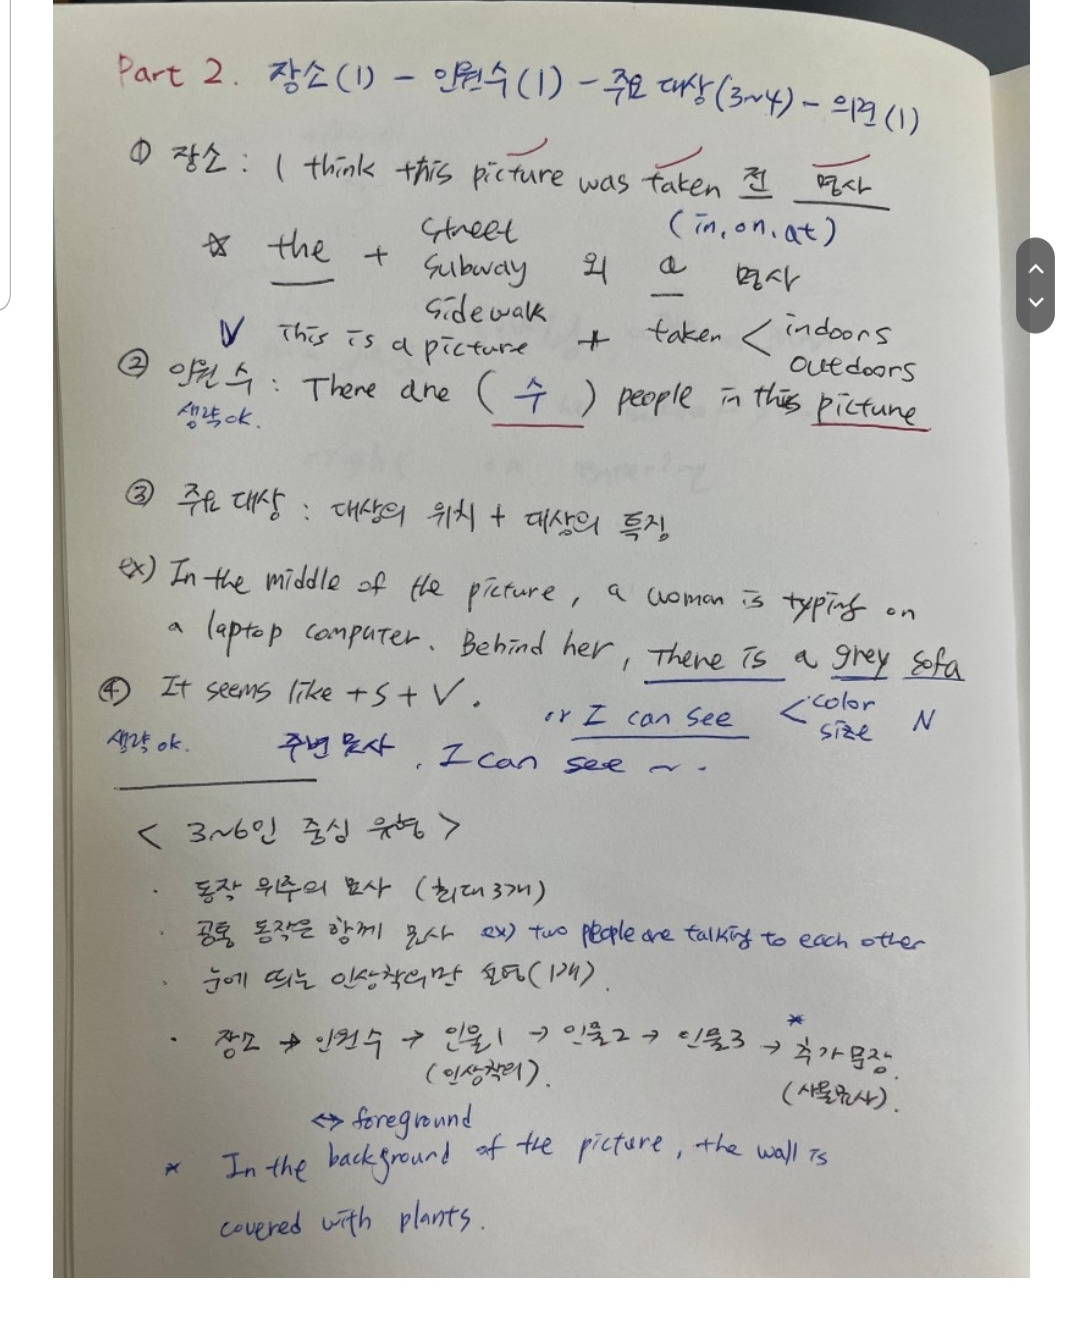 Part 2. 장소(1) - 인원수(1) - 주요 대상(3~4) - 의견(1)
① 장소 : I think this picture was taken 전 명사
(in, on, at)
☆ the + street subway sidewalk 외 a 명사
V This is a picture + taken < indoors outdoors
② 인원 수 : There are ( 수 ) people in this picture
생략 ok.
③ 주요 대상 : 대상의 위치 + 대상의 특징
ex) In the middle of the picture, a woman is typing on
a laptop computer. Behind her, there is a grey sofa
④ It seems like + S + V.
or I can see < color size N
생략 ok.
주변 묘사, I can see ~.
< 3~6인 중심 유형 >
· 동작 위주의 묘사 (최대 3개)
· 공통 동작은 함께 묘사 ex) two people are talking to each other
· 눈에 띄는 인상착의만 설명(1개).
· 장소 → 인원수 → 인물1 → 인물2 → 인물3 → * 추가 문장.
(인상착의).
(사물묘사).
↔ foreground
* In the background of the picture, the wall is
covered with plants.